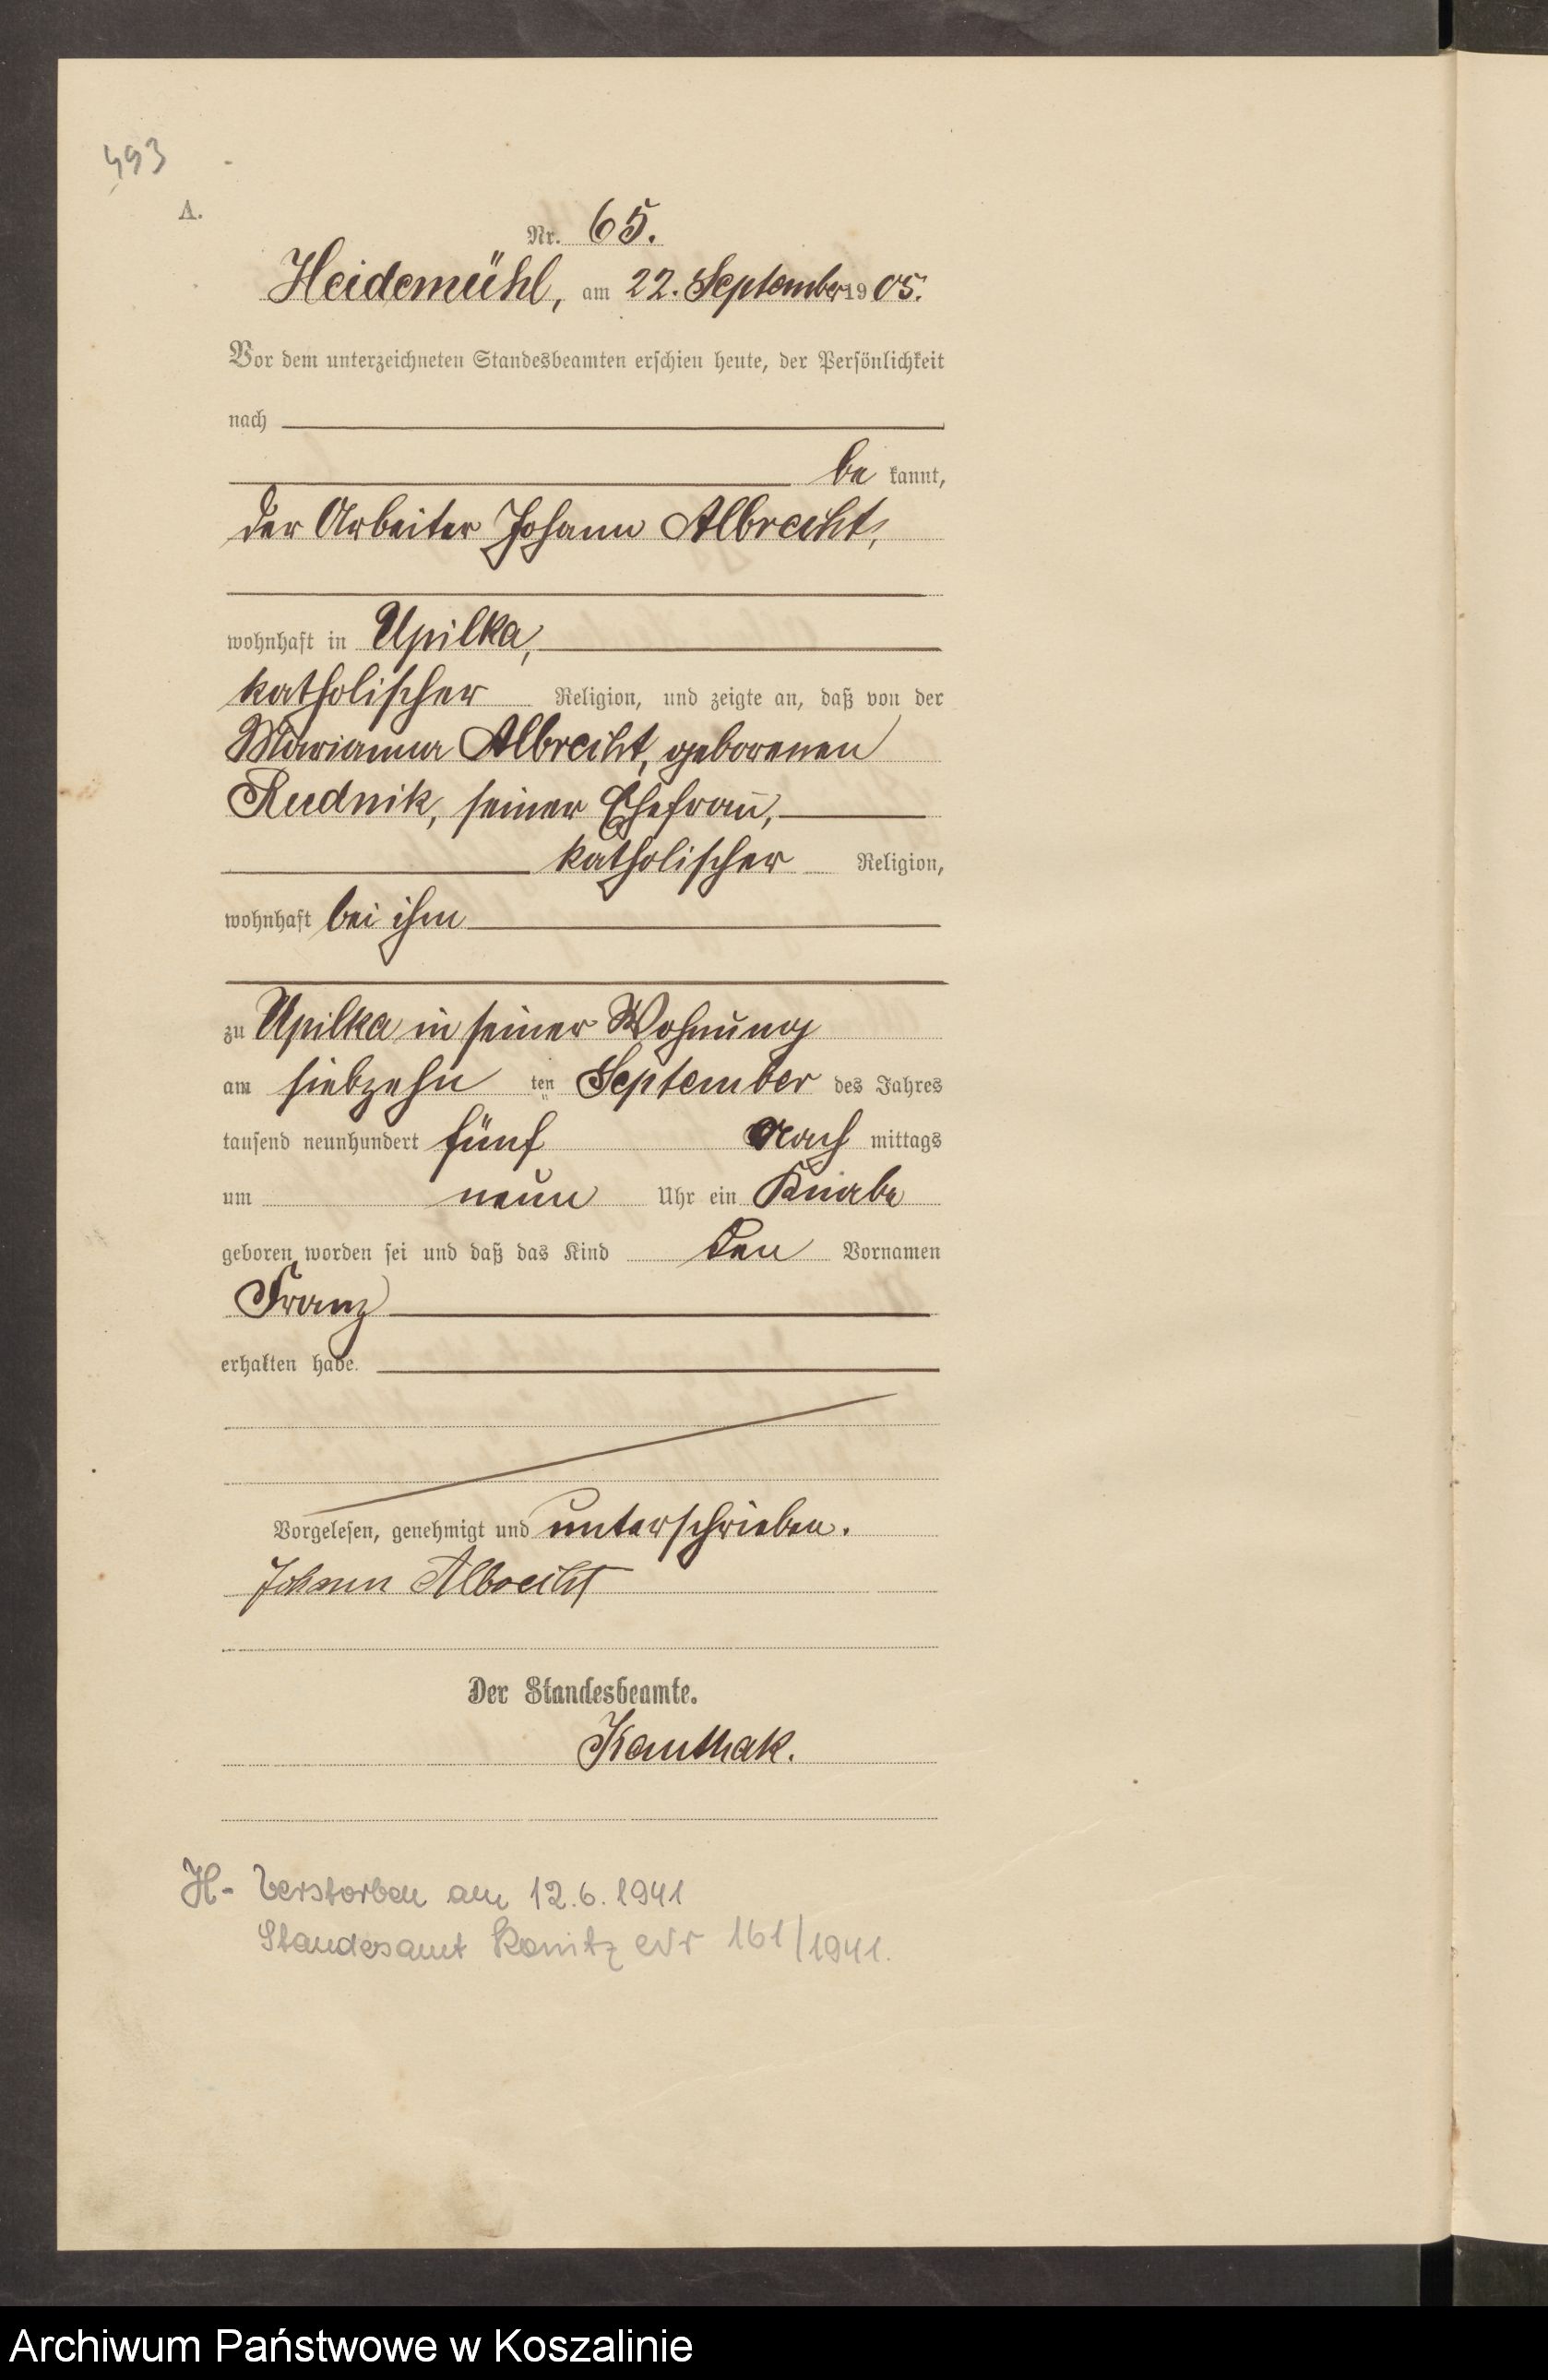 493
A.
Nr. 65.
Heidemühl, am 22. September 1905.
Vor dem unterzeichneten Standesbeamten erschien heute, der Persönlichkeit
nach
be kannt,
der Arbeiter Johann Albrecht,
wohnhaft in Upilka,
katholischer Religion, und zeigte an, daß von der
Marianna Albrecht, geborenen
Rudnik, seiner Ehefrau,
katholischer Religion,
wohnhaft bei ihm
zu Upilka in seiner Wohnung
am siebzehn ten September des Jahres
tausend neunhundert fünf Nach mittags
um neun Uhr ein Knabe
geboren worden sei und daß das Kind den Vornamen
Franz
erhalten habe.
Vorgelesen, genehmigt und unterschrieben.
Johann Albrecht
Der Standesbeamte.
Kauthak.
H- Verstorben am 12.6.1941
Standesamt Konitz Nr 161/1941.
Archiwum Państwowe w Koszalinie